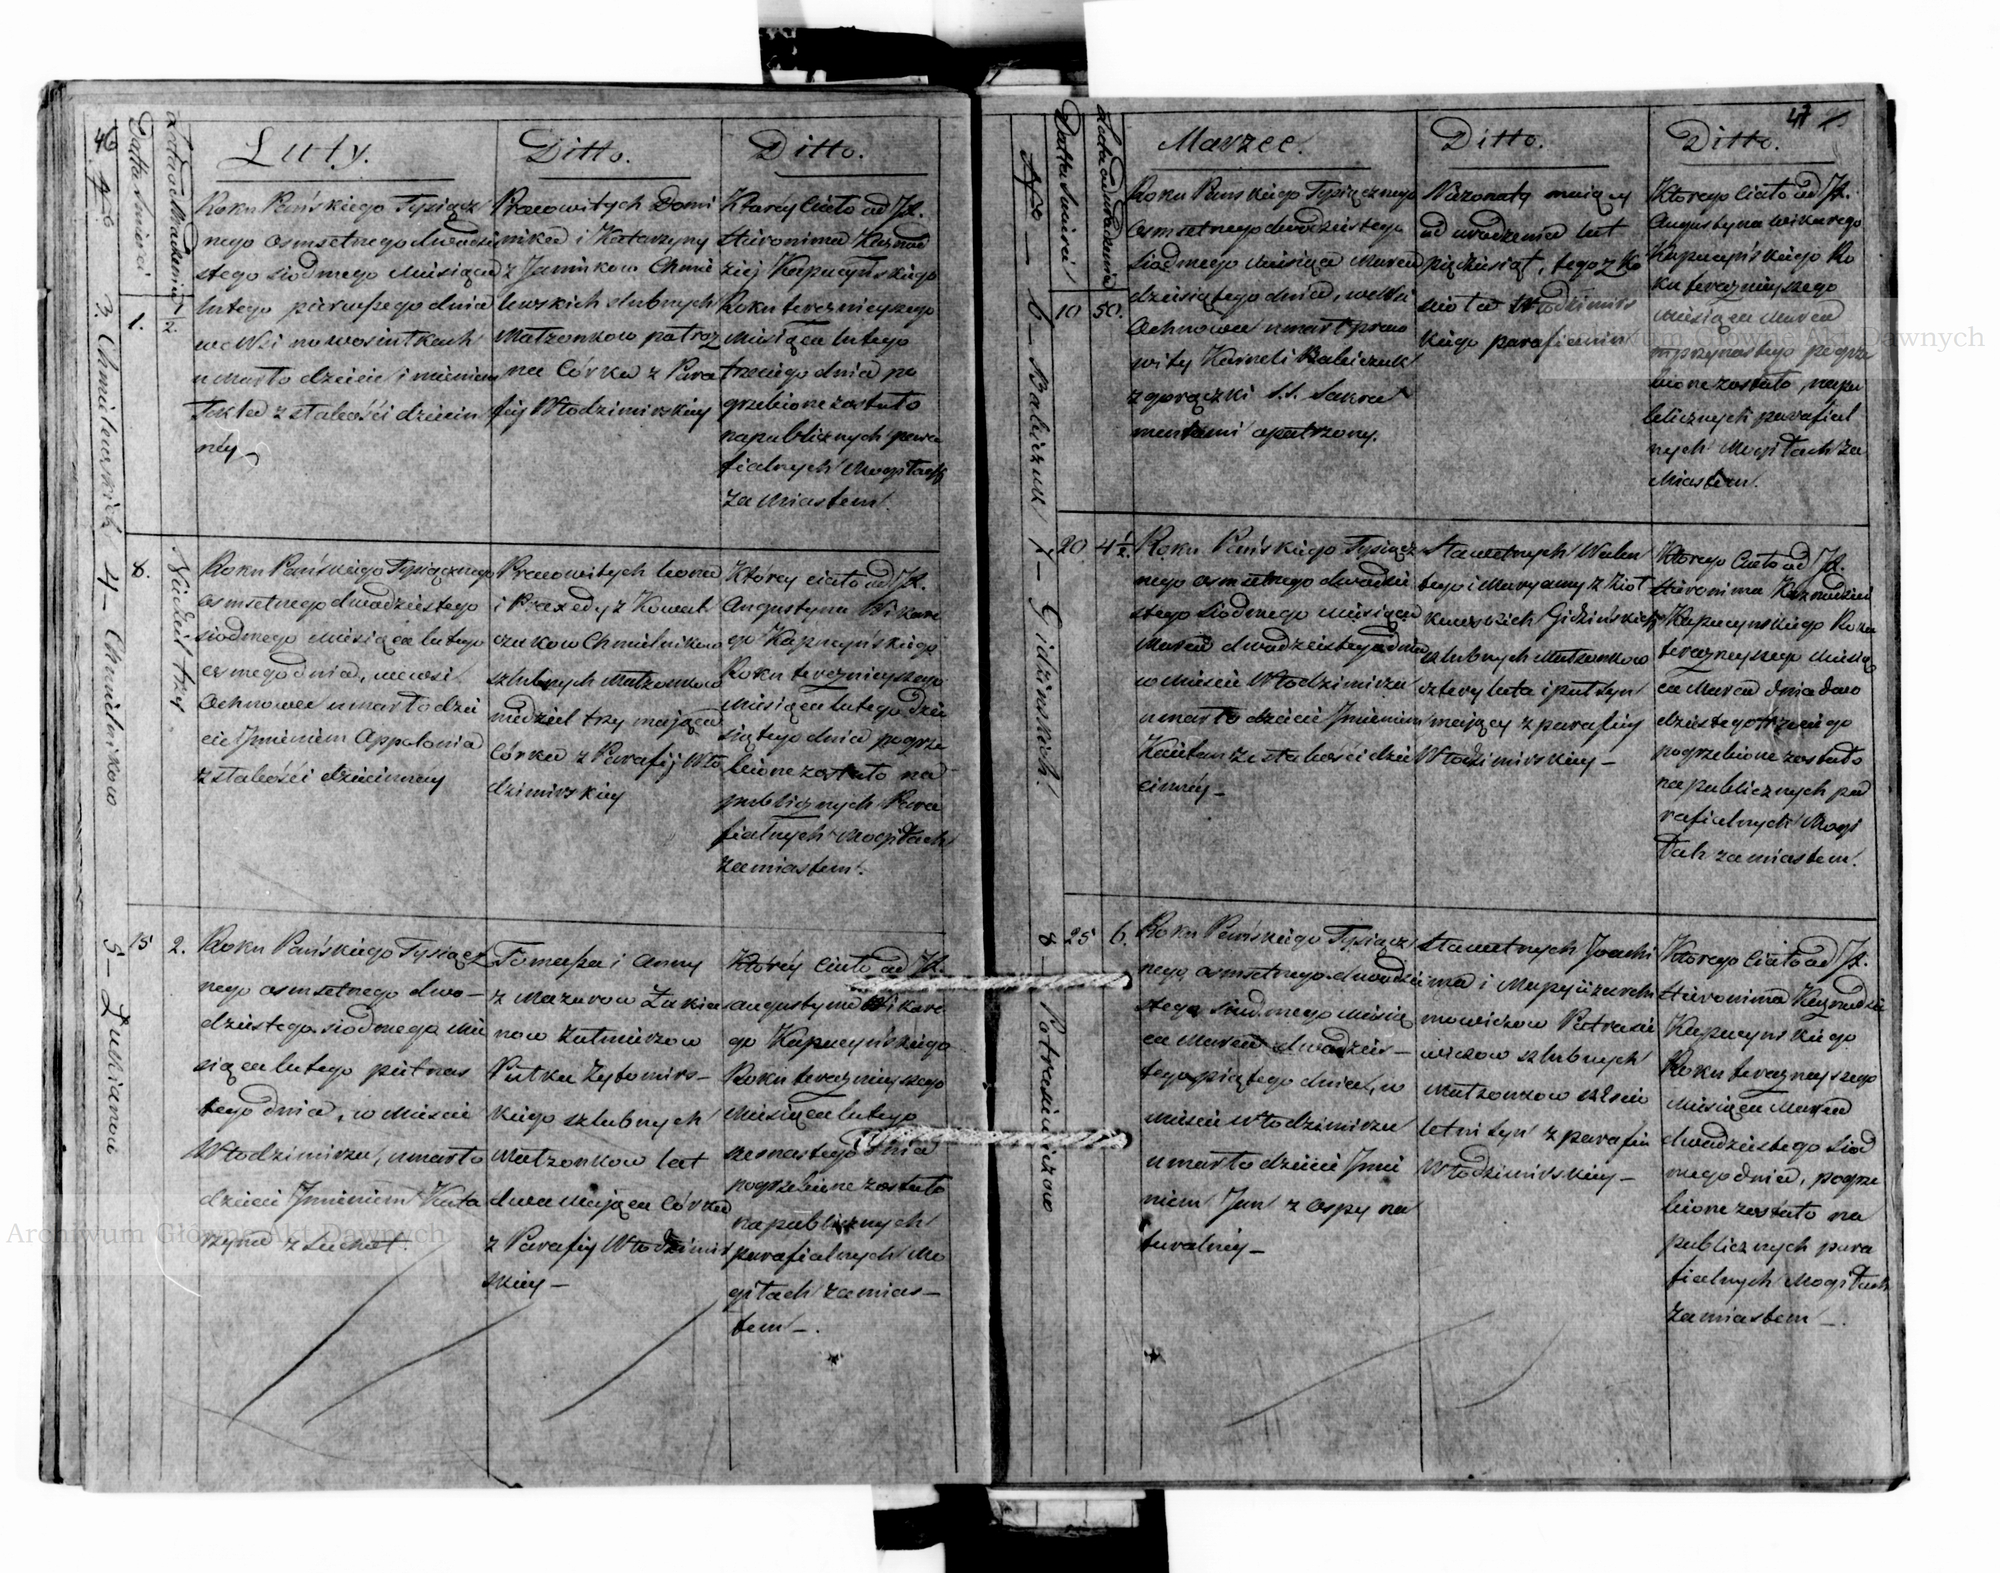 46
Datta Smierci
Lata od Urodzenia
Luty.
Ditto.
Ditto.
3. Chmielewskich
1.
1/2.
Roku Pańskiego Tysiącz
nego osmsetnego dwudzie
stego siodmego miesiąca
lutego pierwszego dnia
we Wsi nowosiutkach
umarło dziecie imieniem
Tekla z słabości dziecin
néy
Pracowitych Domi
nika i Katarzyny
z Janikow Chmie
lewskich slubnych
Matzonkow
na Córka z Para
fij Włodzimirskiey
Ktorey Ciało od JX.
Hieronima Kaznod
ziej Kapucyńskiego
Roku teraznieyszego
Miesiąca lutego
trzeciego dnia po
grzebione zostało
na publicznych para
fialnych Mogiłach
za Miastem.
4 – Chmielnikow
8.
Niedziel trzy
Roku Pańskiego Tysiącznego
osmsetnego dwudziestego
siodmego miesiąca lutego
osmego dnia, we wsi
Ochnowce umarło dzie
cie Imieniem Appolonia
z słabości dziecinney
Pracowitych Leona
i Praxedy z Kowal
czukow Chmielnikow
szlubnych Matzonkow
niedziel trzy maiąca
Córka z Parafij Wło
dzimirskiey
Ktorey ciało od JX.
Augustyna Wikare
go Kapucyńskiego
Roku teraznieyszego
Miesiąca lutego dzie
siątego dnia pogrze
bione zostało na
publicznych Para
fialnych Mogiłach
za miastem.
5 – Łukianow
15
2.
Roku Pańskiego Tysiącz
nego osmsetnego dwu–
dziestego siodmego mie
siąca lutego pietnas
tego dnia, w Mieście
Włodzimirzu, umarło
dziecie Imieniem Kata
rzyna z suchot.
Tomasza i Anny
z Mazurow Łukia
now Zołnierzow
Pułku Żytomirs–
kiego szlubnych
Matzonkow lat
dwa maiąca Córka
z Parafij Włodzimir
skiey –
Któréy Ciało od JX.
Augustyna Wikare
go Kapucyńskiego
Roku teraznieyszego
Miesiąca lutego
szesnastego dnia
pogrzebione zostało
na publicznych
parafialnych Mo
giłach za mias–
tem –.
47
Datta Smierci
Lata od Urodzenia
Marzec.
Ditto.
Ditto.
6 – Babiczuk
10
50.
Roku Panskiego Tysiącznego
osmsetnego dwudziestego
siodmego Miesiąca Marca
dziesiątego dnia, we Wsi
Ochnowce umarł praco
wity Korneli Babiczuk
z gorączki S.S. Sakra
mentami opatrzony.
Niezonaty maiący
od urodzenia lat
pięćdziesiąt, tego z Ko
ścioła Włodzimirs
kiego parafianin
Ktorego Ciało od JX.
Augustyna Wikarego
Kapucyńskiego Ro
ku teraznieyszego
Miesiąca Marca
pogrze
bione zostało, na pu
blicznych parafial
nych Mogiłach za
Miastem.
7 – Gidzinskich.
20
4 1/2.
Roku Pańskiego Tysiącz
nego osmsetnego dwudzie
stego siodmego miesiąca
Marca dwudziestego dnia
w Mieście Włodzimirzu
umarło dziecie Imieniem
Kaietan ze słabości dzie
cinnéy –
Sławetnych Walen
tego i Maryanny z Zioł
kowskich Gidzińskich
szlubnych Matzonkow
cztery lata i puł syn
maiący z parafiiy
Włodzimirskiey –
Ktorego Ciało od JX.
Hieronima Kaznodziei
Kapucynskiego Roku
teraznieyszego miesią
ca Marca dnia dwu
dziestego trzeciego
pogrzebione zostało
na publicznych pa
rafialnych Mogi
łach za miastem.
8 – Patrasiewiczow
25
6.
Roku Pańskiego Tysiącz
nego osmsetnego dwudzie
stego siodmego Miesią
ca Marca dwudzies–
tego piątego dnia, w
mieście Włodzimirzu
umarło dziecie Imie
niem Jan z ospy na
turalnéy –
Sławetnych Joachi
ma i Maryi
mowiczow Patrasie
wiczow szlubnych
Matzonkow sześcio
letni syn z parafii
Włodzimirskiey –
Ktorego Ciało od JX.
Hieronima Kaznodziei
Kapucynskiego
Roku teraznieyszego
Miesiąca Marca
dwudziestego siod
mego dnia, pogrze
bione zostało na
publicznych para
fialnych Mogiłach
za miastem –.
Archiwum Główne Akt Dawnych
Archiwum Główne Akt Dawnych